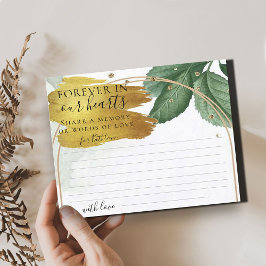 FOREVER IN
our hearts
SHARE A MEMORY
OR WORDS OF LOVE
for
with love